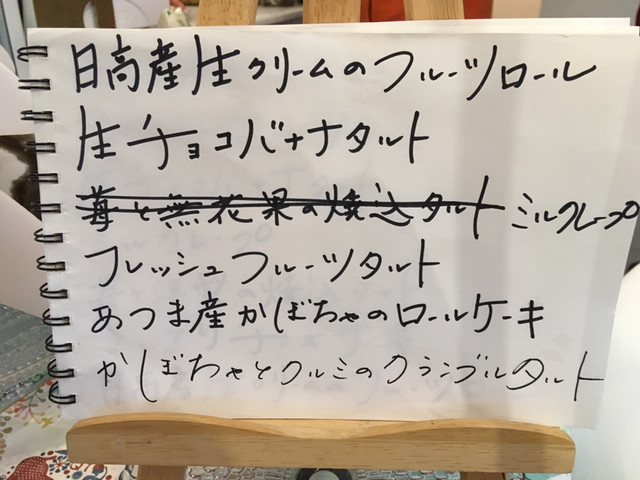 日高産生クリームのフルーツロール
生チョコバナナタルト
苺と無花果の焼込タルト ミルクレープ
フレッシュフルーツタルト
あつま産かぼちゃのロールケーキ
かぼちゃとクルミのクランブルタルト